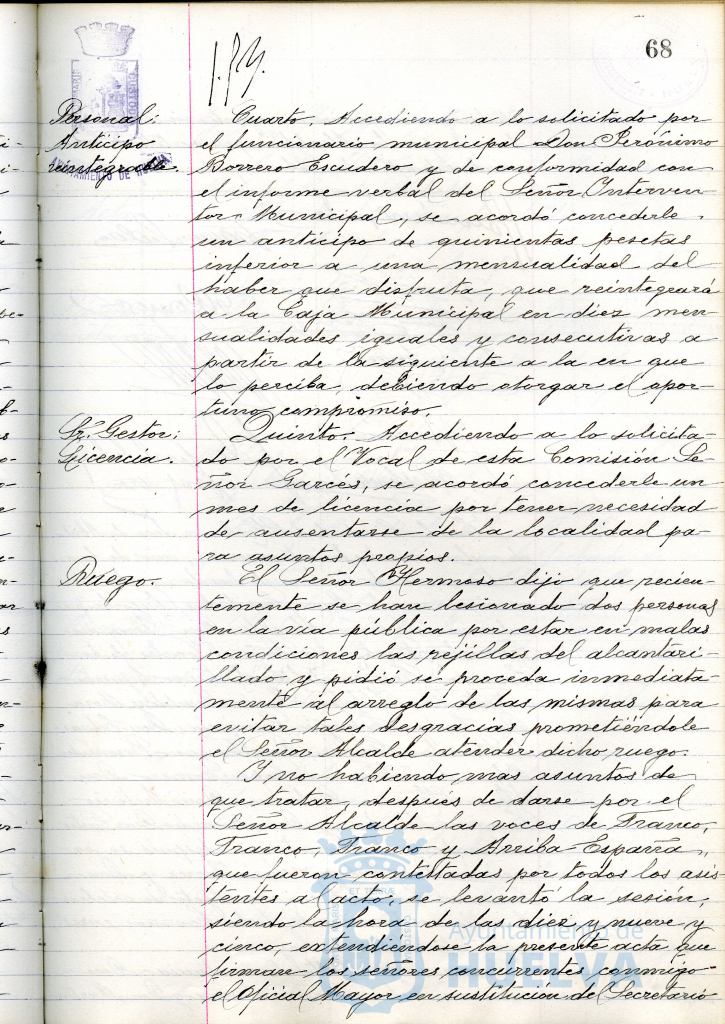 68
Personal:
Anticipo
reintegrable.
AYUNTAMIENTO DE HUELVA
Cuarto. Accediendo a lo solicitado por
el funcionario municipal Don Jerónimo
Borrero Escudero y de conformidad con
el informe verbal del Señor Interven-
tor Municipal, se acordó concederle
un anticipo de quinientas pesetas
inferior a una mensualidad del
haber que disfruta, que reintegrará
a la Caja Municipal en diez men-
sualidades iguales y consecutivas a
partir de la siguiente a la en que
lo perciba, debiendo otorgar el opor-
tuno compromiso.
Sr. Gestor:
Licencia.
Quinto. Accediendo a lo solicita-
do por el Vocal de esta Comisión Se-
ñor Garcés, se acordó concederle un
mes de licencia por tener necesidad
de ausentarse de la localidad pa-
ra asuntos propios.
Ruego.
El Señor Hermoso dijo que recien-
temente se han lesionado dos personas
en la vía pública por estar en malas
condiciones las rejillas del alcantari-
llado y pidió se proceda inmediata-
mente al arreglo de las mismas para
evitar tales desgracias prometiéndole
el Señor Alcalde atender dicho ruego.
Y no habiendo mas asuntos de
que tratar, después de darse por el
Señor Alcalde las voces de Franco,
Franco, Franco y Arriba España,
que fueron contestadas por todos los asis-
tentes al acto, se levantó la sesión,
siendo la hora de las diez y nueve y
cinco, extendiéndose la presente acta que
firman los señores concurrentes conmigo
el Oficial Mayor en sustitución de Secretario
Ayuntamiento de
HUELVA